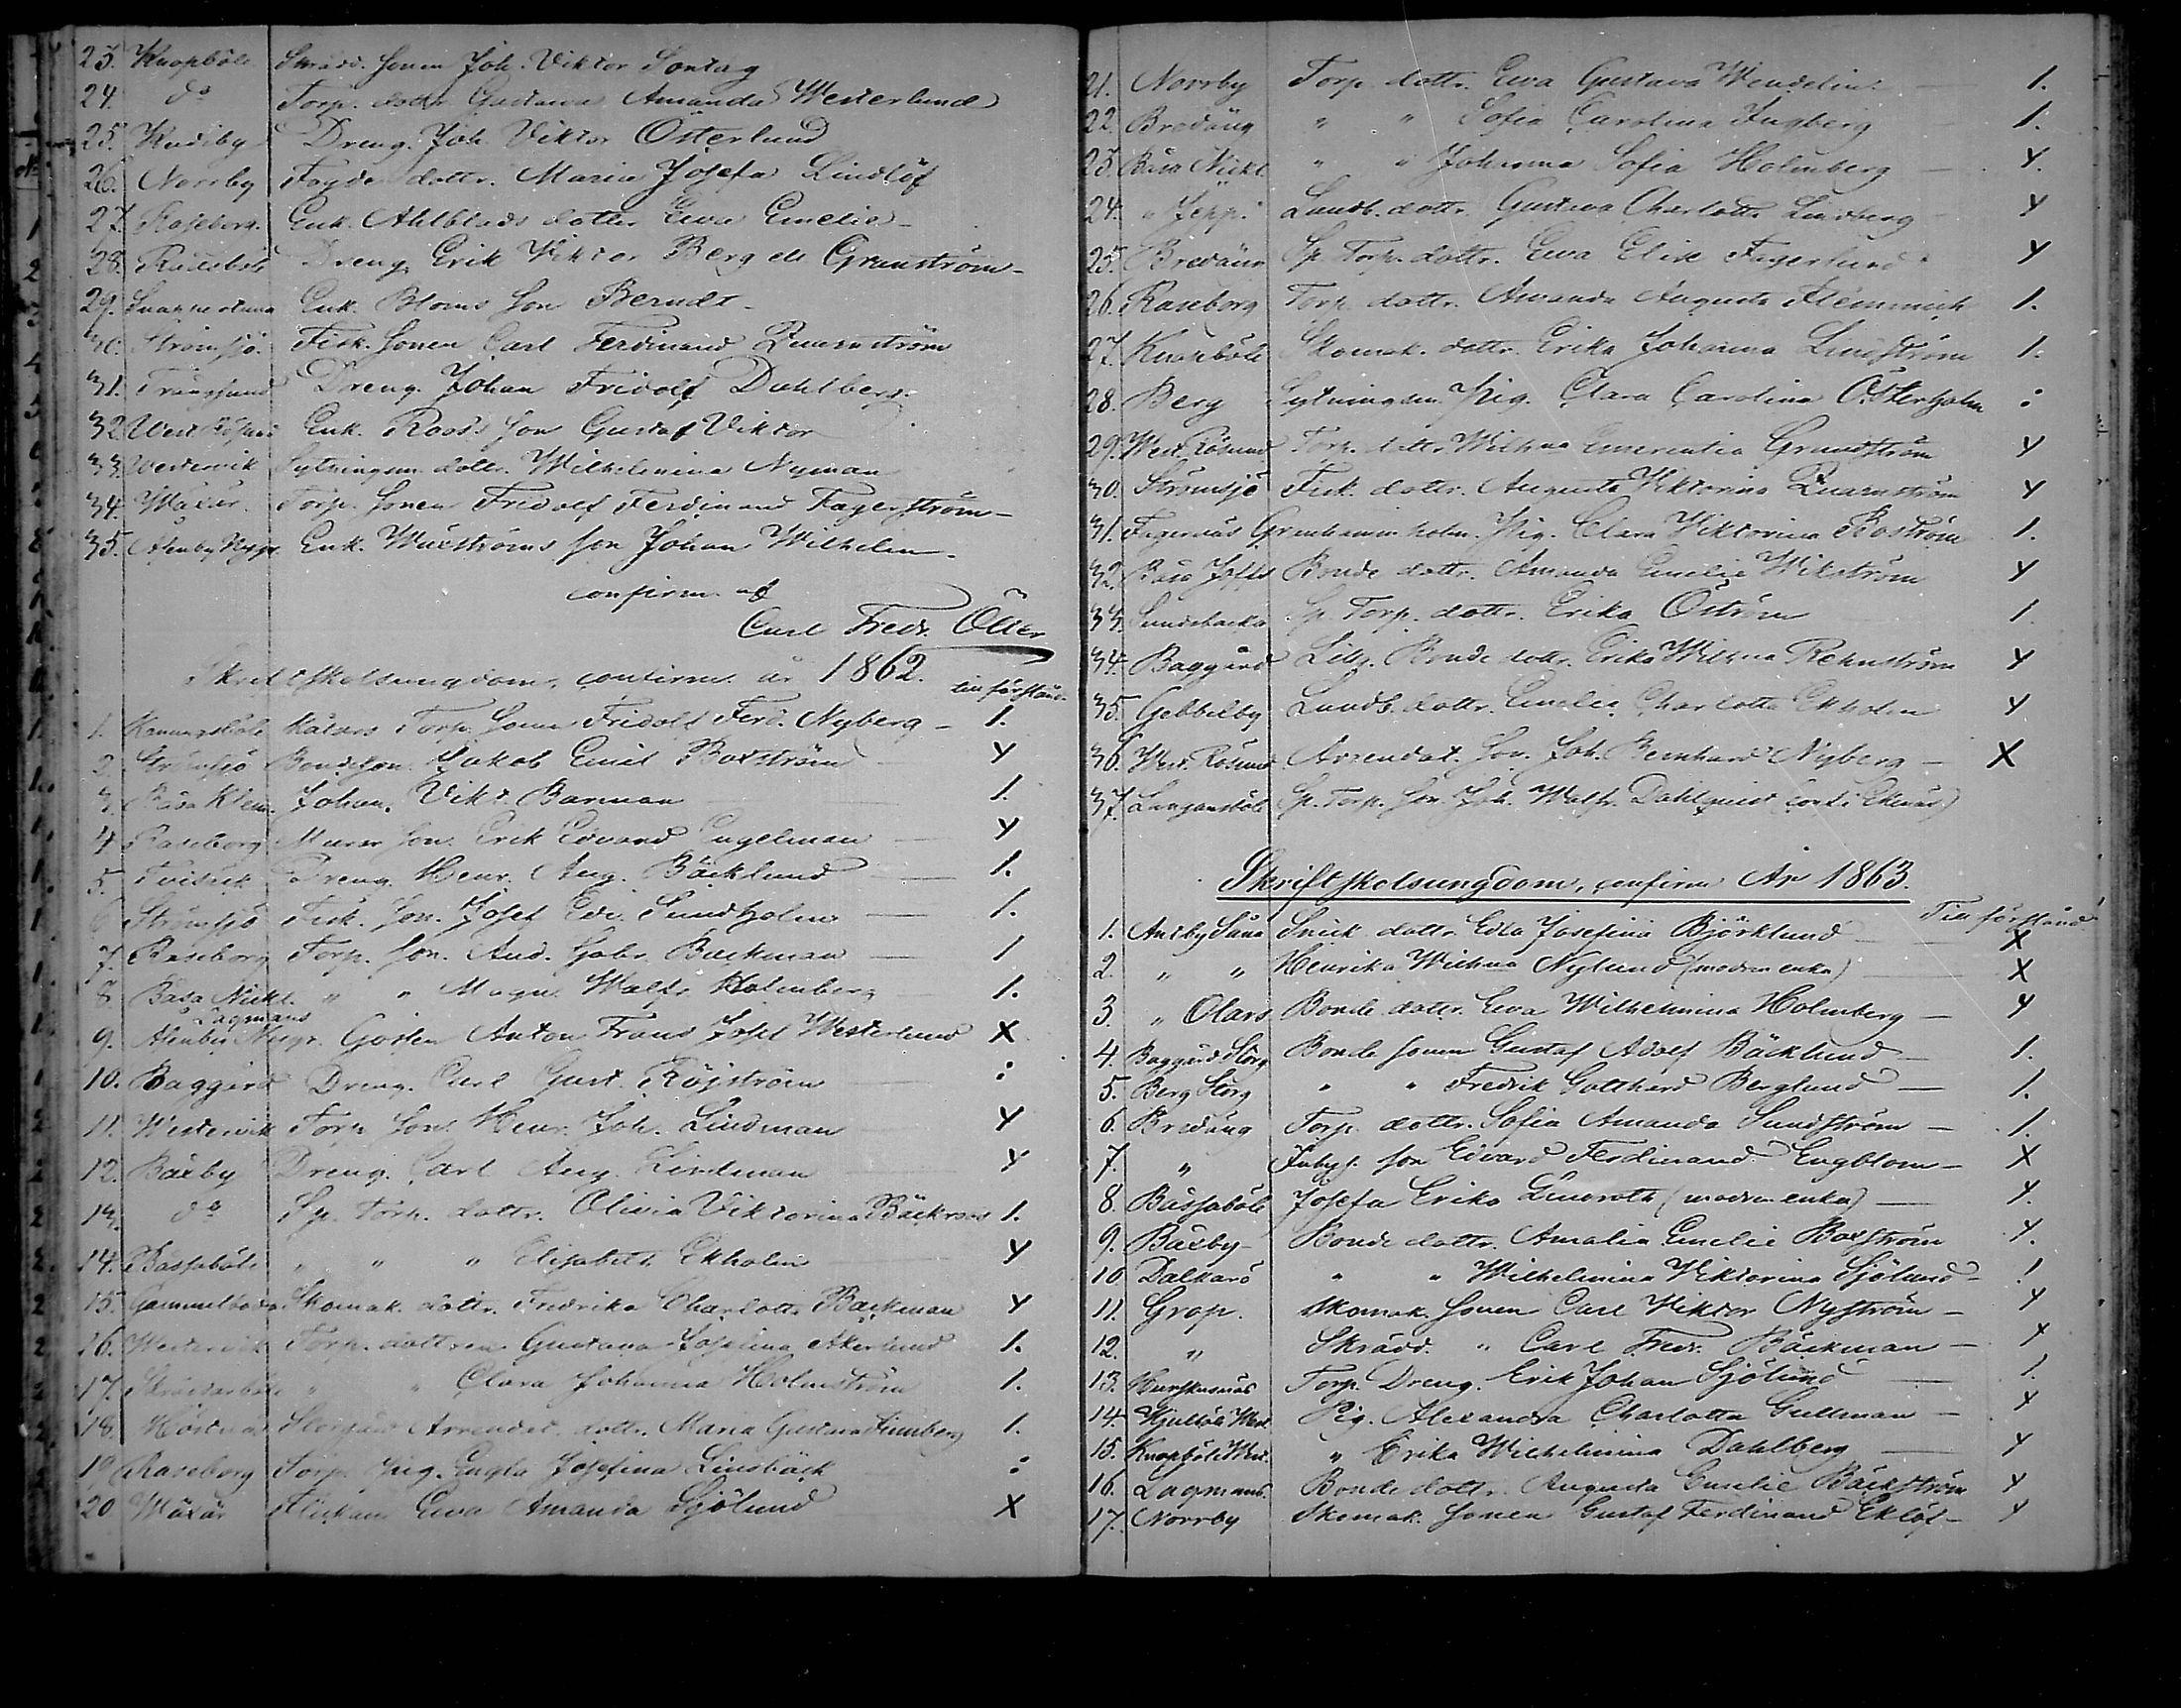 23. Knapböle Skrädd. sonen Joh. Viktor Sontag
24. d:o Torp. dottr. Gustava Amanda Westerlund
25. Dreng. Joh Viktor Österlund
26. Norrby dottr. Maria Josefa Lindlöf
27. Raseborg. Enk. Ahlblads dotter Ewa Emelie -
28. Dreng. Erik Viktor Berg el. Granström -
29. Snappertuna Enk. Bloms son Berndt -
30. Strömsjö. Fisk. sonen Carl Ferdinand Quarnström
31. Trångsund Dreng. Johan Fridolf Dahlberg.
32. West. Rösund Enk. Roos's son Gustaf Viktor
33. Westervik Sytningsm. dottr. Wilhelmina Nyman
34. Wäxär. Torp. sonen Fridolf Ferdinand Fagerström -
35. Alenby Nygr. Enk. Wäxströms son Johan Wilhelm -
confirm. af
Carl Fredr. Öller
Skriftskolsungdom, confirm. år 1862. till förstånd.
1. Torp. sonen Fridolf Ferd. Nyberg - 1.
2. Strömsjö Bondeson. Jakob Emil Boxström Y
3. Båsa Klem. Johan. Vikt. Barman 1.
4. Raseborg Murar son. Erik Edvard Engelman — Y
5. Dreng. Henr. Aug. Bäcklund — 1.
6. Strömsjö Fisk. son. Josef Edv. Sundholm — 1.
7. Raseborg Torp. son. And. Gabr. Backman — 1
8. Båsa Nickl. " " Magn. Walfr. Holmberg — 1.
Lagmans
9. Alenby Nygr. Gossen Anton Frans Josef Westerlund X
10. Baggård Dreng. Carl Gust. Röjström :
11. Westervik Torp. son. Henr. Joh. Lindman Y
12. Båxby Dreng. Carl Aug. Lindman Y
13. d:o Sp. Torp. dottr. Olivia Viktorina Bäckroos 1.
14. Bassaböle " " " Elisabeth Ekholm Y
15. Gammelboda Skomak. dottr. Fredrika Charlotta Bäckman Y
16. Westervik Torp. dottren Gustava Josefina Åkerlund 1.
17. " " Clara Johanna Holmström 1.
18. Arrendat. dottr. Maria Gustava 1.
19. Raseborg Torp. pig. Engla Josefina Lindbäck :
20 Wäxär Flickan Ewa Amanda Sjölund X
21. Norrby Torp. dottr. Ewa Gustava Wendelin — 1.
22. Bredäng " " Sofia Carolina Ingberg 1.
23. Båsa Nickl. " " Johanna Sofia Holmberg — Y.
24. " Jepp. Landb. dottr. Gustava Charlotta Lindberg Y
25. Bredäng Sp. Torp. dottr. Ewa Elise Fagerlund Y
26. Raseborg Torp. dottr. Amanda Augusta Flemmich 1.
27. Knapböle Skomak. dottr. Erika Johanna Lindström 1.
28. Berg Sytningsm. Pig. Clara Carolina Österholm :
29. West. Rösund Torp. dottr. Wilhma Emerentia Grundström Y
30. Strömsjö Fisk. dottr. Augusta Viktorina Quarnström Y
31. Fagernäs Pig. Clara Viktorina Roström 1.
32. Båsa Jepps Bonde dottr. Amanda Emelie Wikström Y
33. Sundsbacka Sp. Torp. dottr. Erika Öström 1.
34. Baggård Lillg. Bonde dottr. Erika Wilhma Rehnström Y
35. Gebbelby Landb. dottr. Emelie Charlotta Ekholm Y
36. West. Rösund Arrendat. son. Joh. Bernhard Nyberg — X
37. Langansböle Sp. Torp. son. Joh. Walfr. Dahlqvist (conf. i Ekenäs)
Skriftskolsungdom, confirm. År 1863.
Till förstånd
1. Antby Såna Snick. dottr. Edla Josefina Björklund — X
2. " " Henrika Wilhma Nylund (modren enka) — X
3. " Olars Bonde dottr. Ewa Wilhelmina Holmberg — Y
4. Baggård Storg Bonde sonen Gustaf Adolf Bäcklund — 1.
5. Berg Storg " " Fredrik Gotthard Berglund — 1.
6. Bredäng Torp. dottr. Sofia Amanda Sundström — 1.
7. " Inhys. son Edvard Ferdinand Engblom — X
8. Bassaböle Josefa Erika Lindroth (modren enka) — Y.
9. Båxby - Bonde dottr. Amalia Emelie Boxström Y.
10 Dalkarö " " Wilhelmina Viktorina Sjölund - 1
11. Grop. Skomak. sonen Carl Viktor Nyström — Y
12. " Skrädd. " Carl Fredr. Bäckman — Y
13. Torp. Dreng. Erik Johan Sjölund — 1.
14. Pig. Alexandra Charlotta Gullman — Y
15. Knapböle West. " Erika Wilhelmina Dahlberg — Y
16. Lagmans. Bonde dottr. Augusta Emelie Bäckström Y
17. Norrby Skomak. sonen Gustaf Ferdinand Eklöf — Y